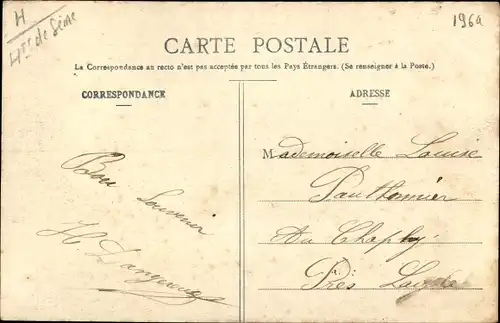 H
Hts de Seine
196a
CARTE POSTALE
La Correspondance au recto n'est pas acceptée par tous les Pays Étrangers. (Se renseigner à la Poste.)
CORRESPONDANCE
ADRESSE
Bon
Souvenir
H.
Mademoiselle Louise
Au
Près Laigle